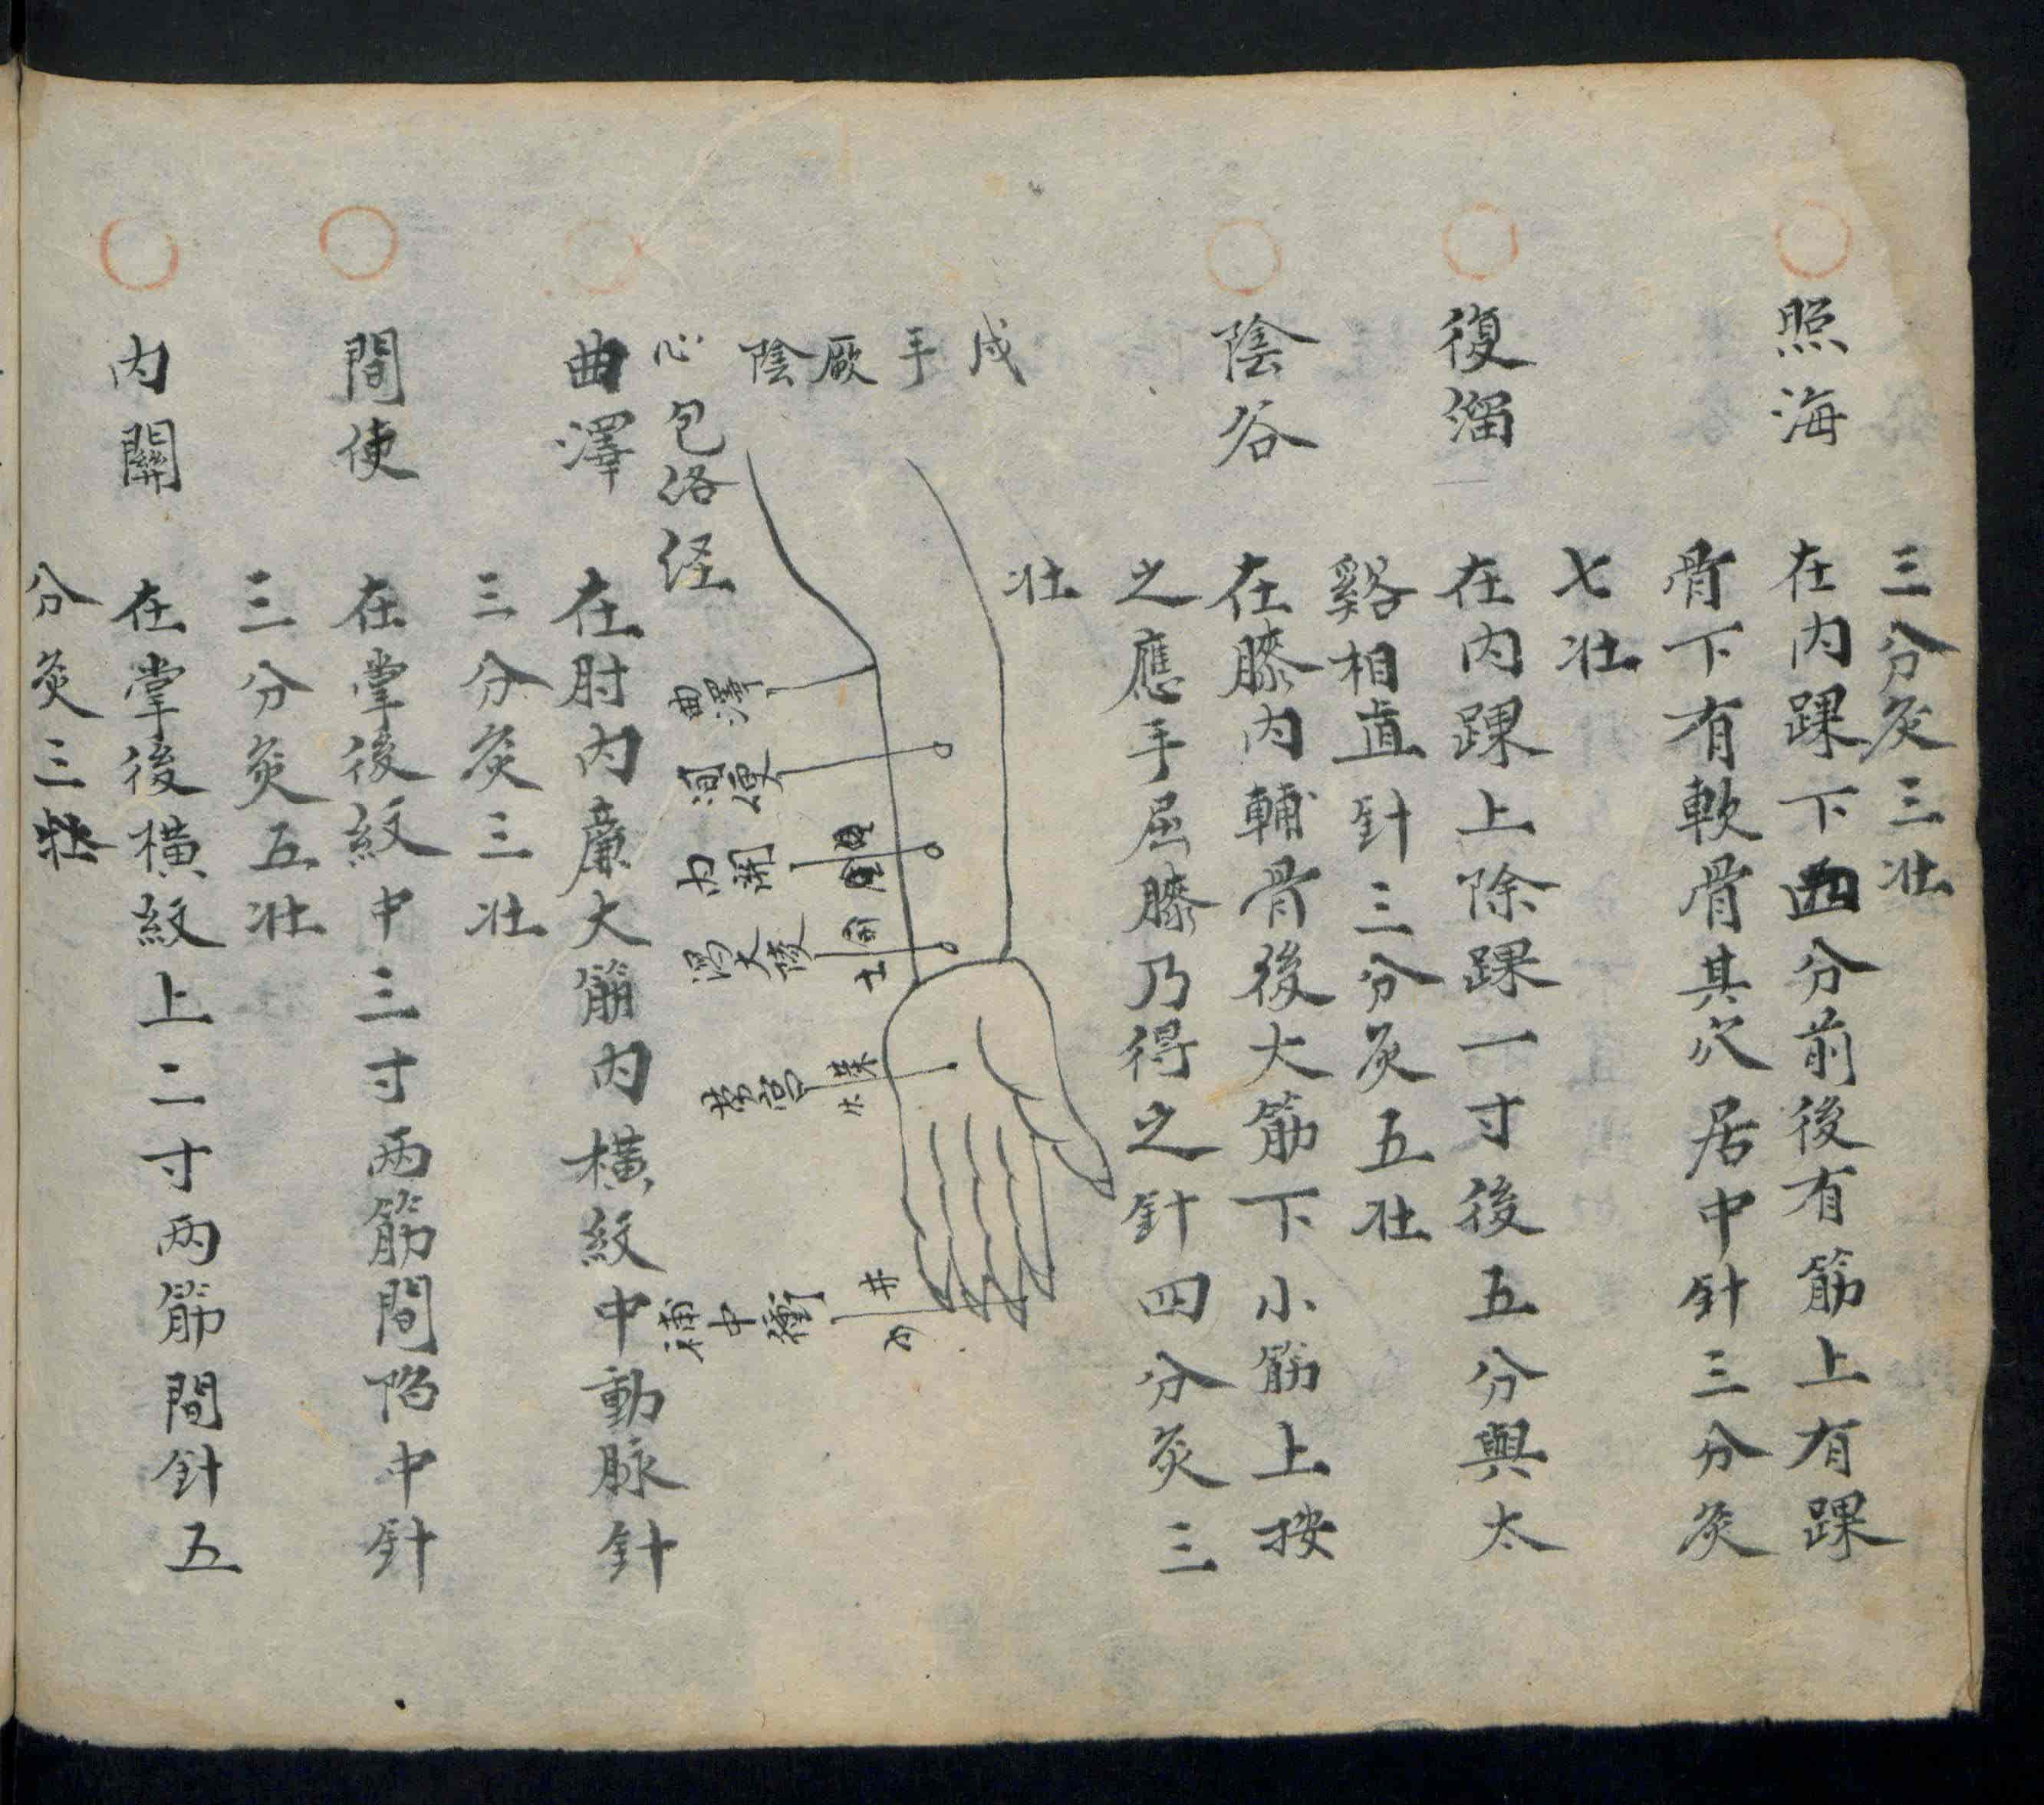 三分灸三壮
照海
在内踝下四分前後有筋上有踝
骨下有軟骨其穴居中針三分灸
七壮
復溜
在内踝上除踝一寸後五分與太
谿相直針三分灸五壮
陰谷
在膝内輔骨後大筋下小筋上按
之應手屈膝乃得之針四分灸三
壮
戌
手
厥
陰
心包络経
曲澤
間使
内関
瀉大陵
土
労宮
荣
火
補中衝
井
曲澤
在肘内廉大筋内横紋中動脉針
三分灸三壮
間使
在掌後紋中三寸两筋間陷中針
三分灸五壮
内關
在掌後横紋上二寸两筋間針五
分灸三壮